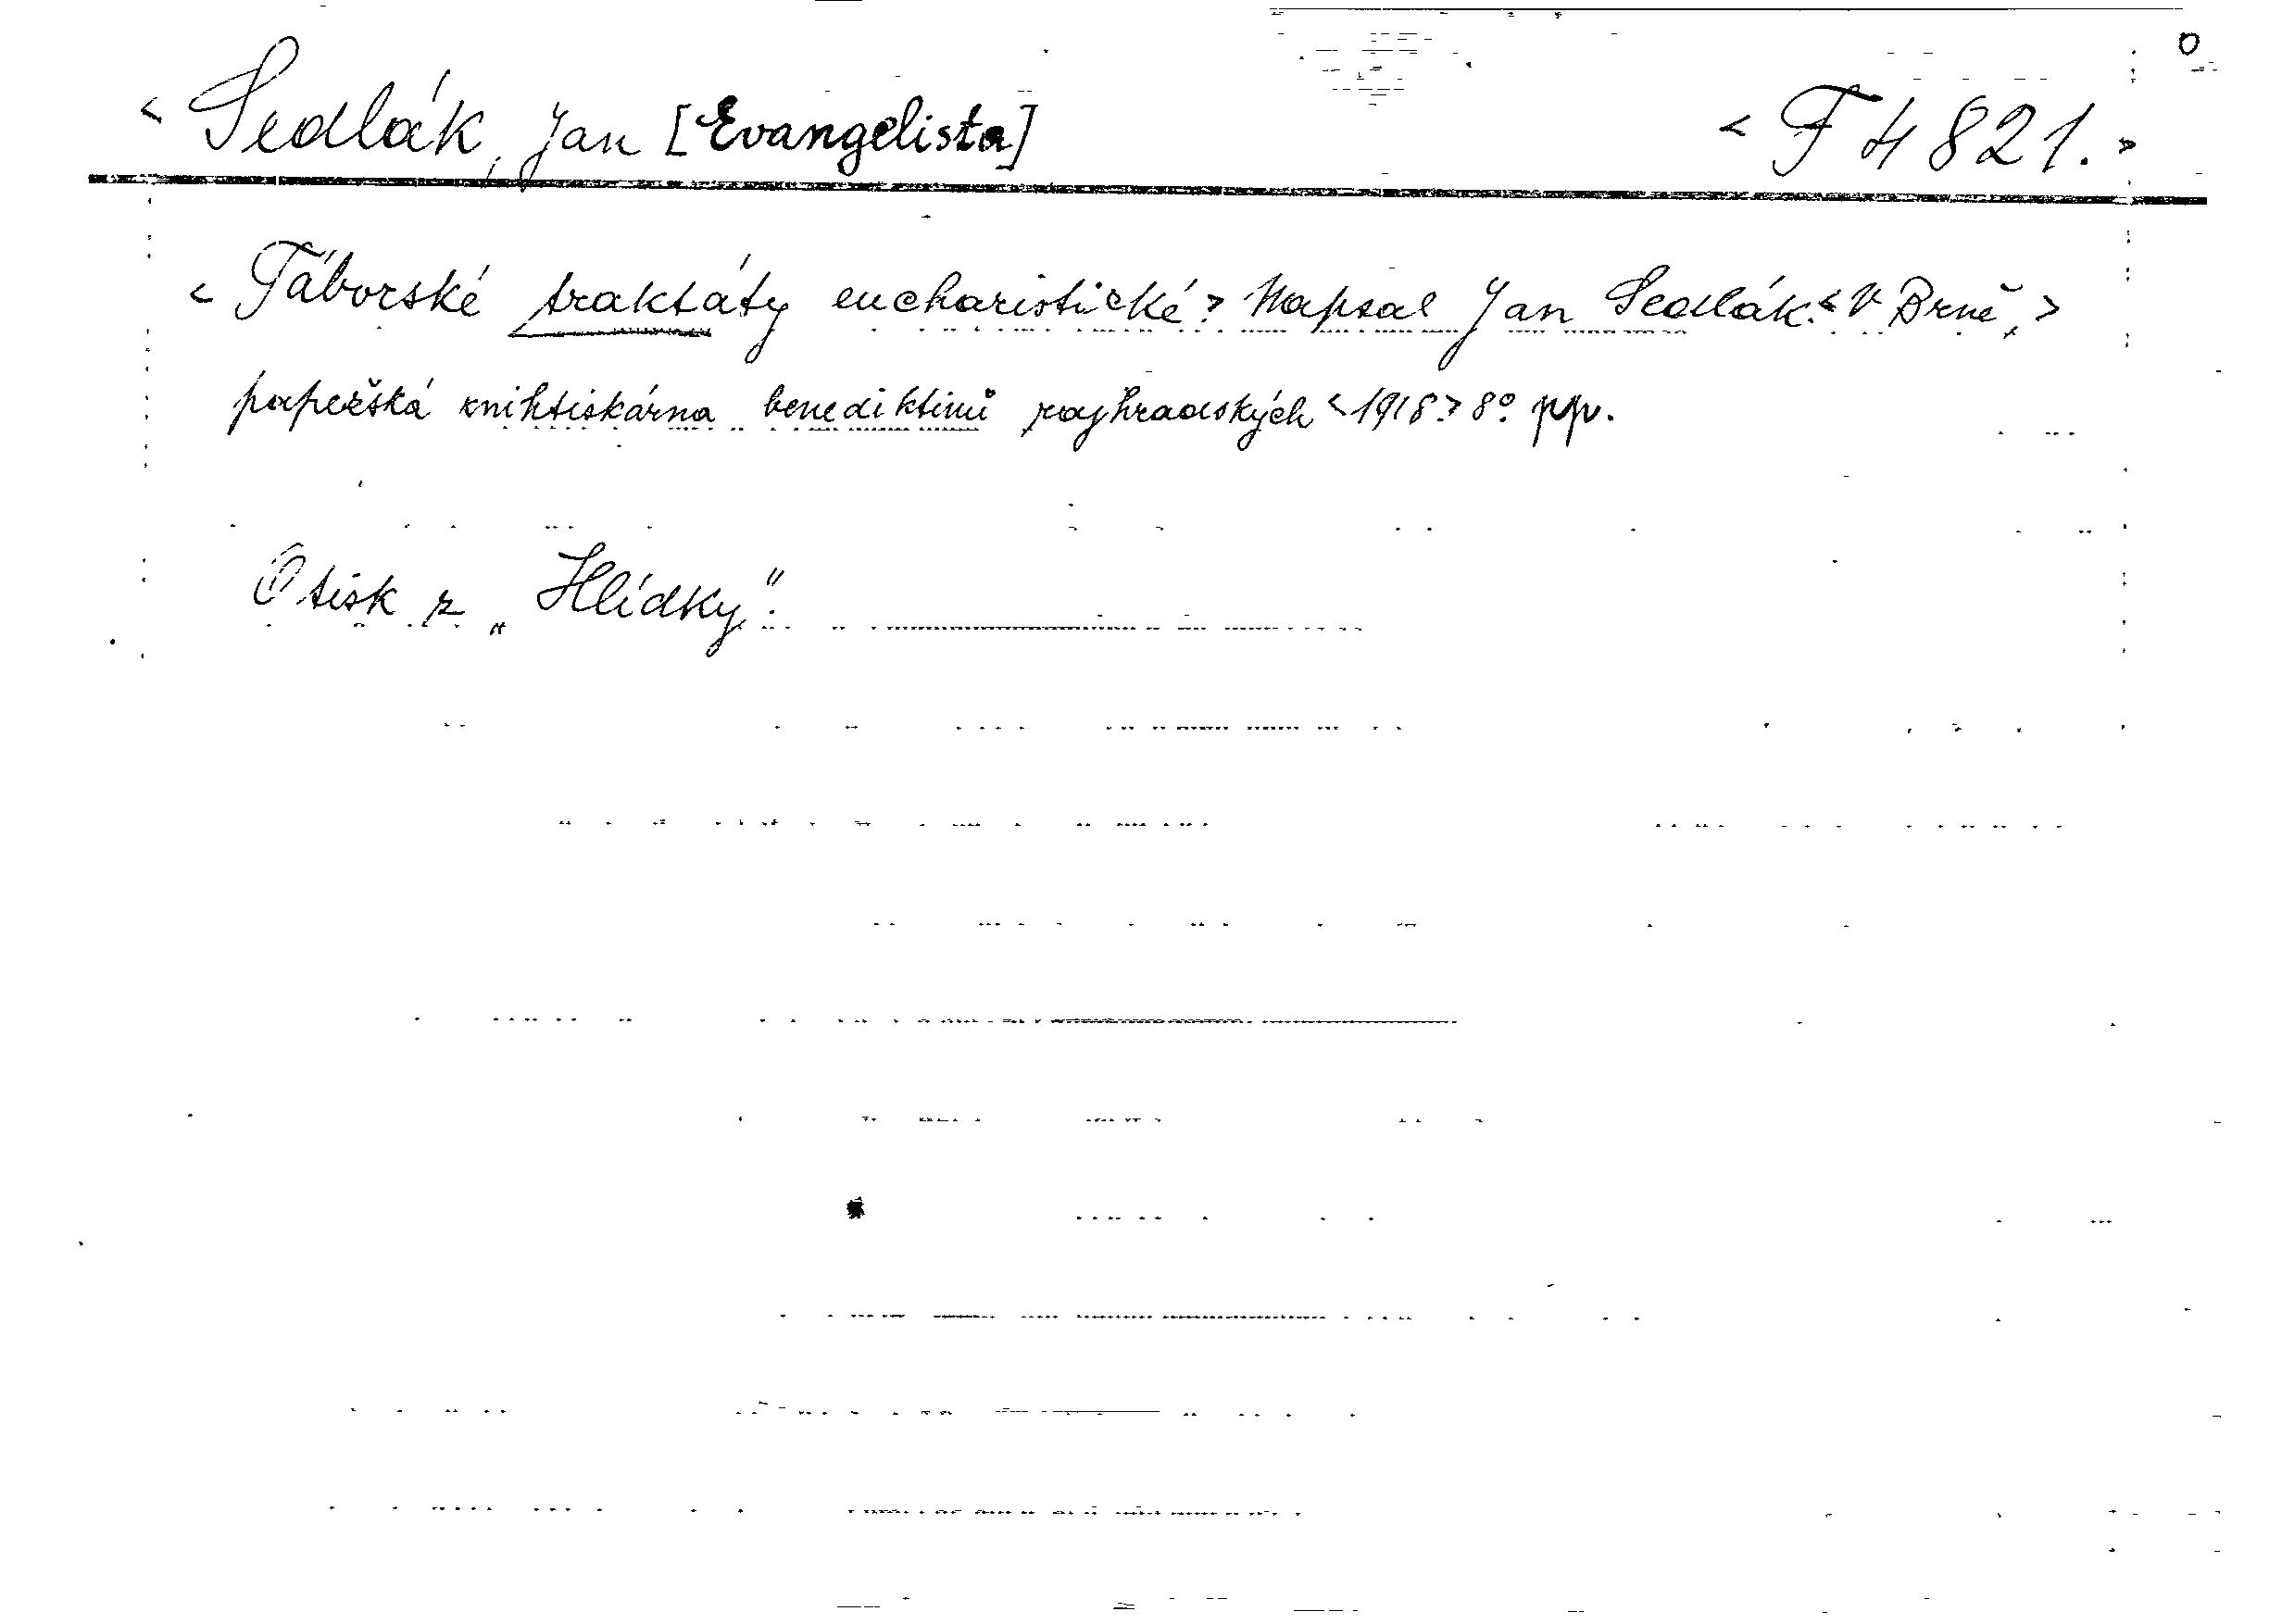 < Sedlák, Jan [Evangelista] < F 4821. >
< Táborské traktáty eucharistické > Napsal Jan Sedlák. < V Brně, >
papežská knihtiskárna benediktinů rajhradských < 1918. > 8° pp.
Otisk z „Hlídky".